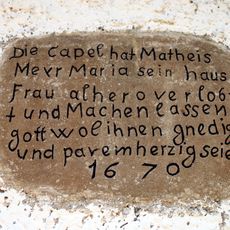 Die Capel hat Matheis
Meyr Maria sein haus
Frau alher overlobt
t und Machen lassen
gott wol ihnen gnedig
und paremherzig seie
1670